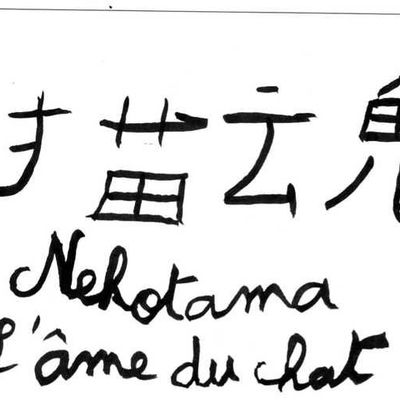 猫魂
Nekotama
L'âme du chat